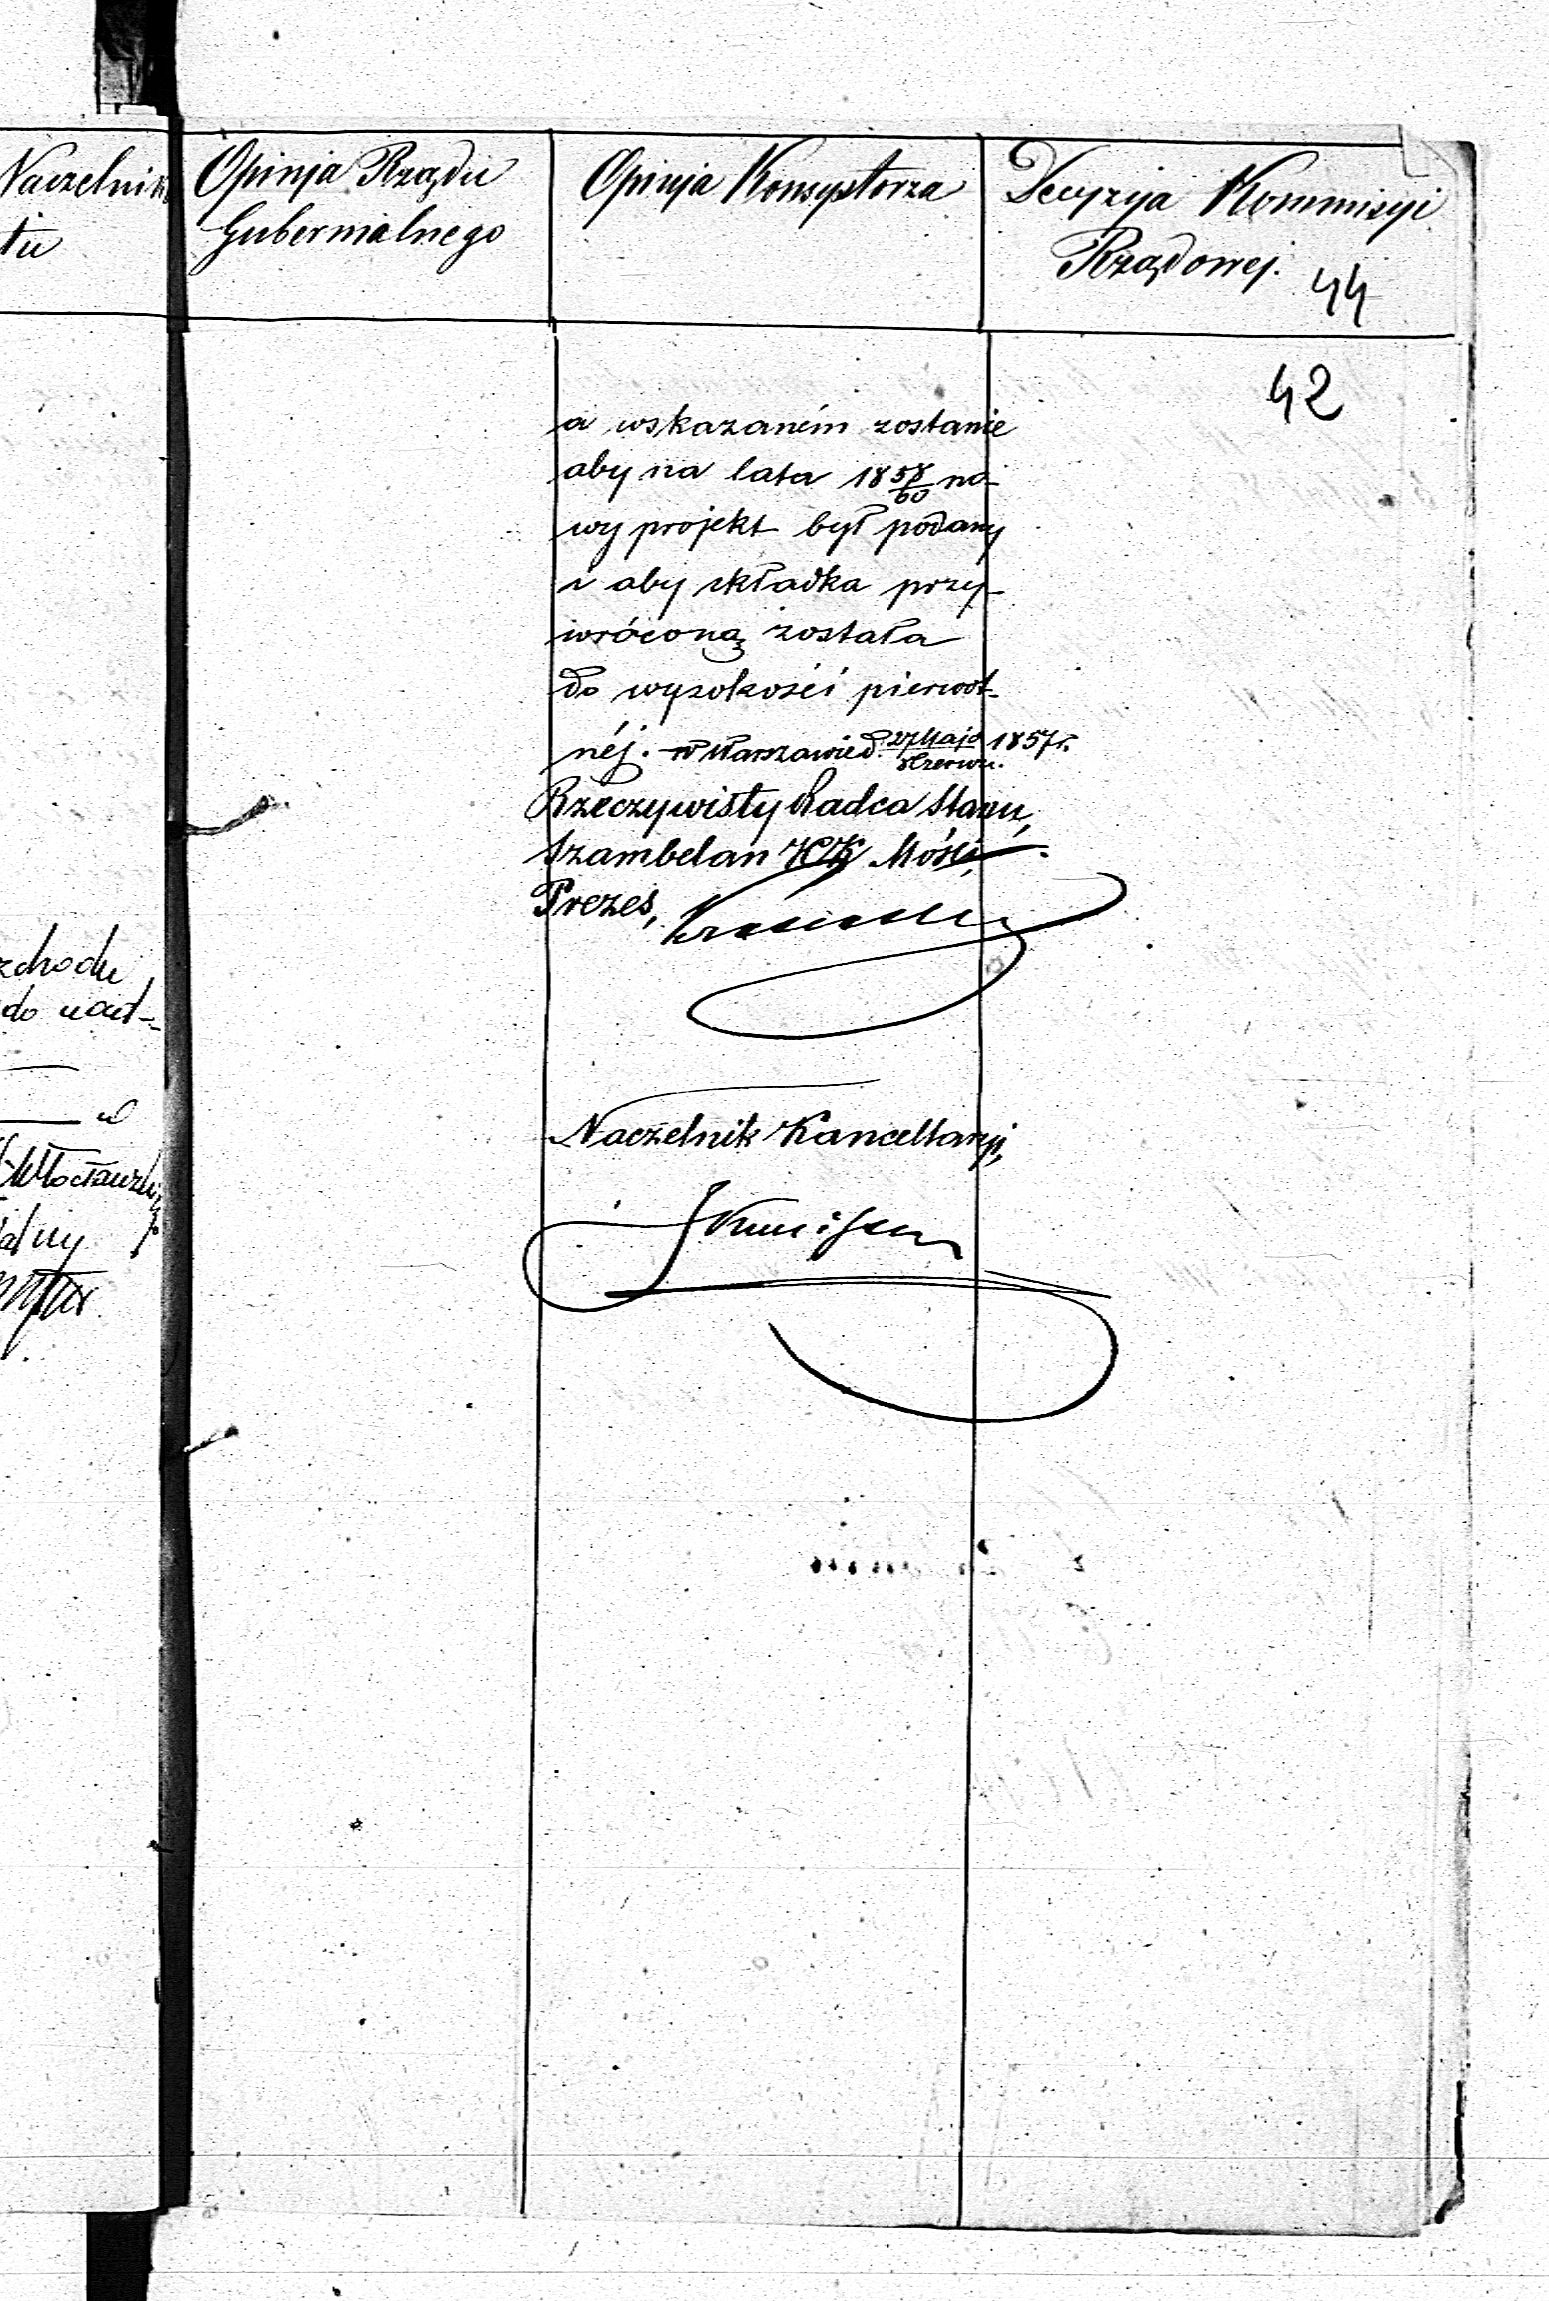 Naczelnik
tu
Opinja Rządu
Gubernialnego
Opinja Konsystorza
Decyzija Kommisyi
Rządowej.
44
42
a wskazaném zostanie
aby na lata 1858/60 no-
wy projekt był podany
i aby składka przy-
wróconą została
do wysokości pierwot-
néj. w Warszawie d. 27 Maja 1857 r.
8 Czerwca.
Rzeczywisty Radca Stanu,
Szambelan JCK Mości,
Prezes,
Naczelnik Kancellaryi,
zchodu
do
w
Włocławski